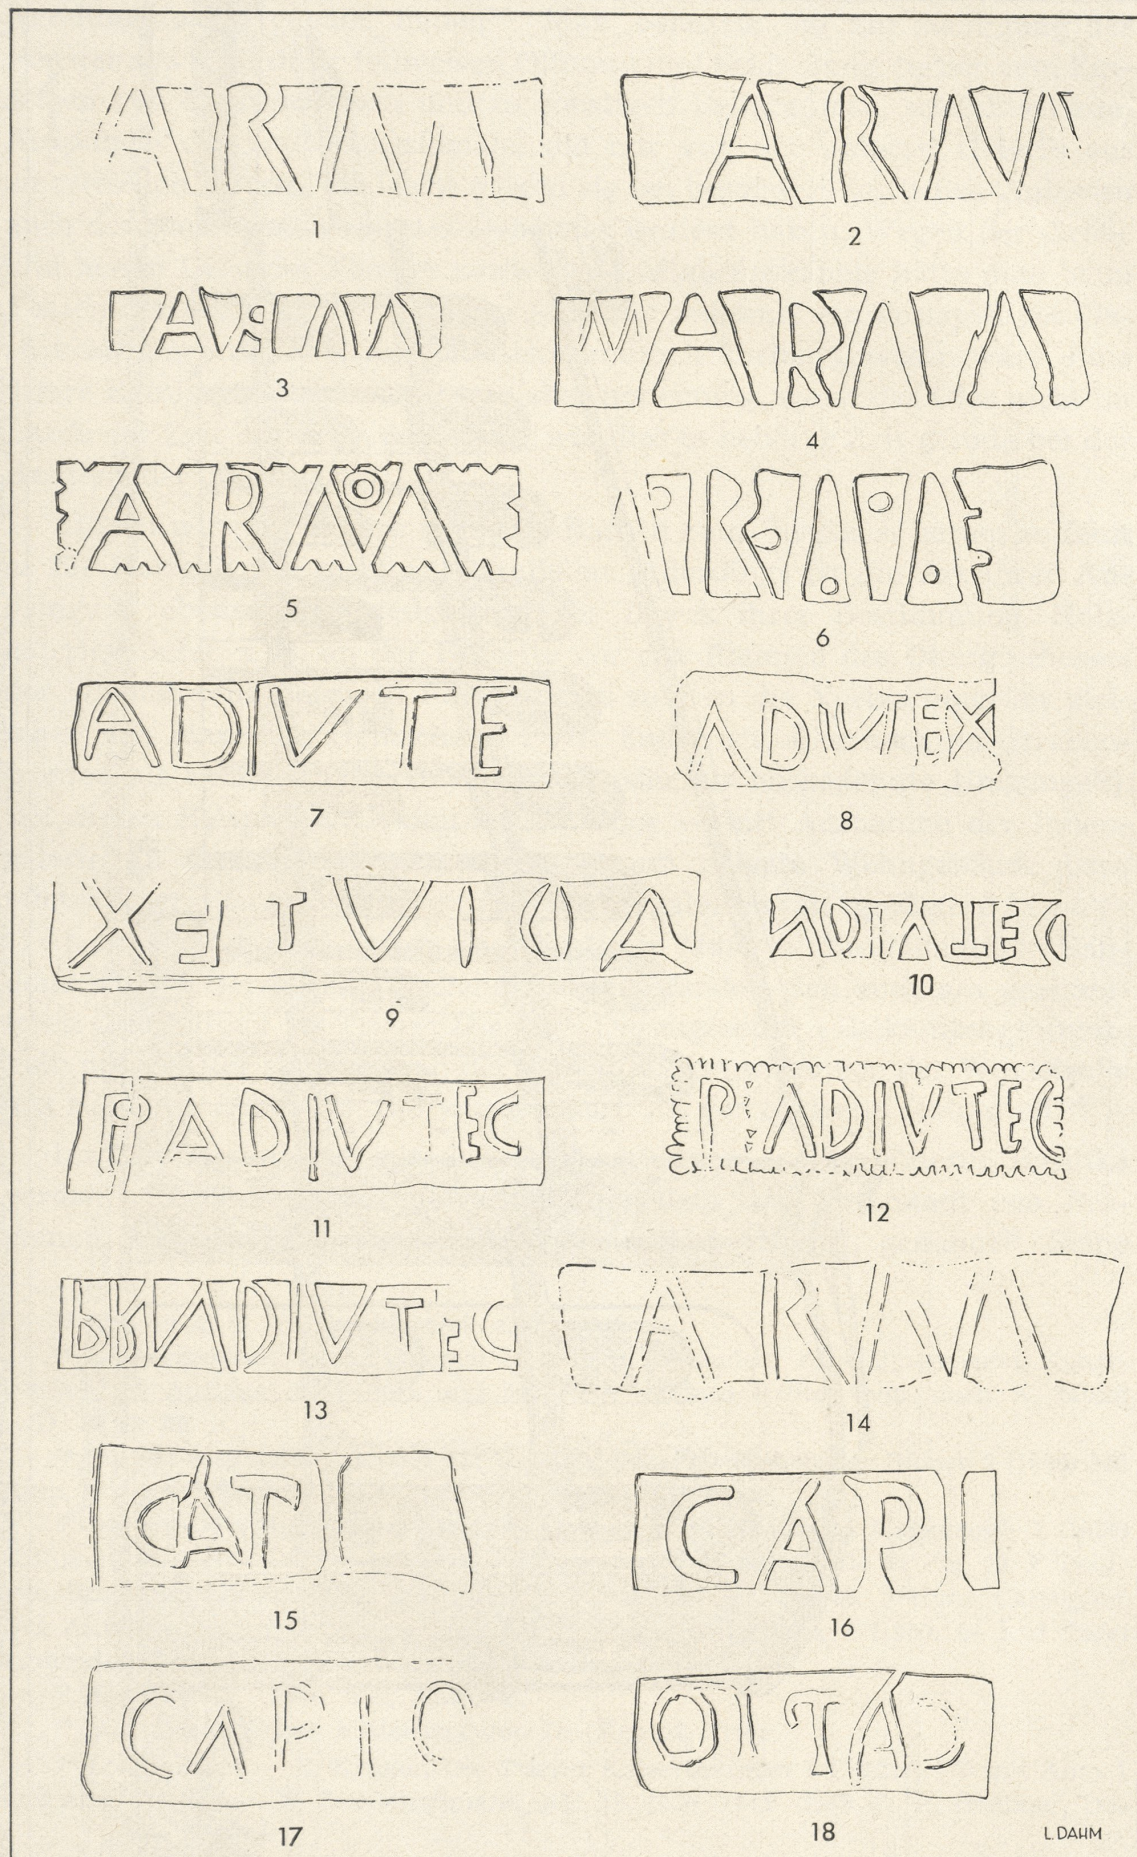 ARM
1
ARM
2
ARM
3
ARM
4
ARM
5
6
ADIVTE
7
ADIVTEX
8
XETVIDA
9
10
P ADIVTEC
11
P ADIVTEC
12
ADIVTEC
13
ARM
14
CATI
15
CAPI
16
CAPIO
17
OITAC
18
L. DAHM